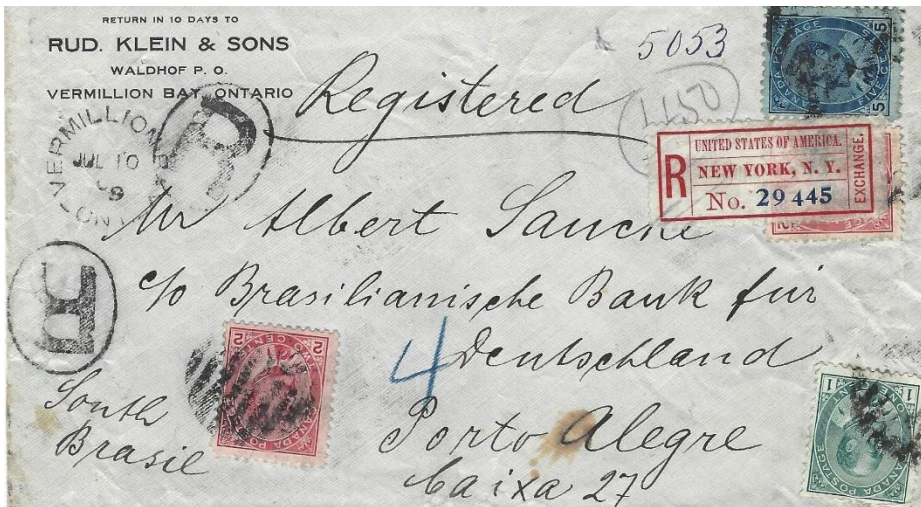 RETURN IN 10 DAYS TO
RUD. KLEIN & SONS
WALDHOF P. O.
VERMILLION BAY, ONTARIO
Registered
5053
R
VERMILLION
JUL 10
9
ONT
UNITED STATES OF AMERICA.
R NEW YORK, N. Y. EXCHANGE.
No. 29 445
Mr Albert Sancke
c/o Brasilianische Bank für
Deutschland
4
Porto Alegre
Caixa 27
South
Brasil
R
CANADA POSTAGE
5 FIVE CENTS 5
2 TWO CENTS 2
CANADA POSTAGE
1 ONE CENT 1
CANADA POSTAGE